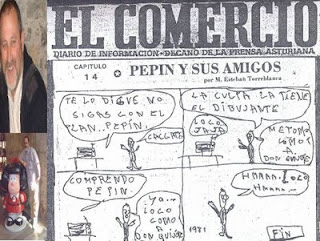 EL COMERCIO
DIARIO DE INFORMACION - DECANO DE LA PRENSA ASTURIANA
CAPITULO
14
PEPIN Y SUS AMIGOS
por M. Esteban Torreblanca
TE LO DIGE NO
SIGAS CON EL
PLAN. PEPÍN.
CALLATE
LA CULPA LA TIENE
EL DIBUJANTE.
LOCO
JAJA
COMO A
DON QUIJOTE
COMPRENDO
PEPIN
YA...
LOCO
COMO A
DON QUIJOTE
HMMMM. LOCO
HMMMM...
1981
FIN